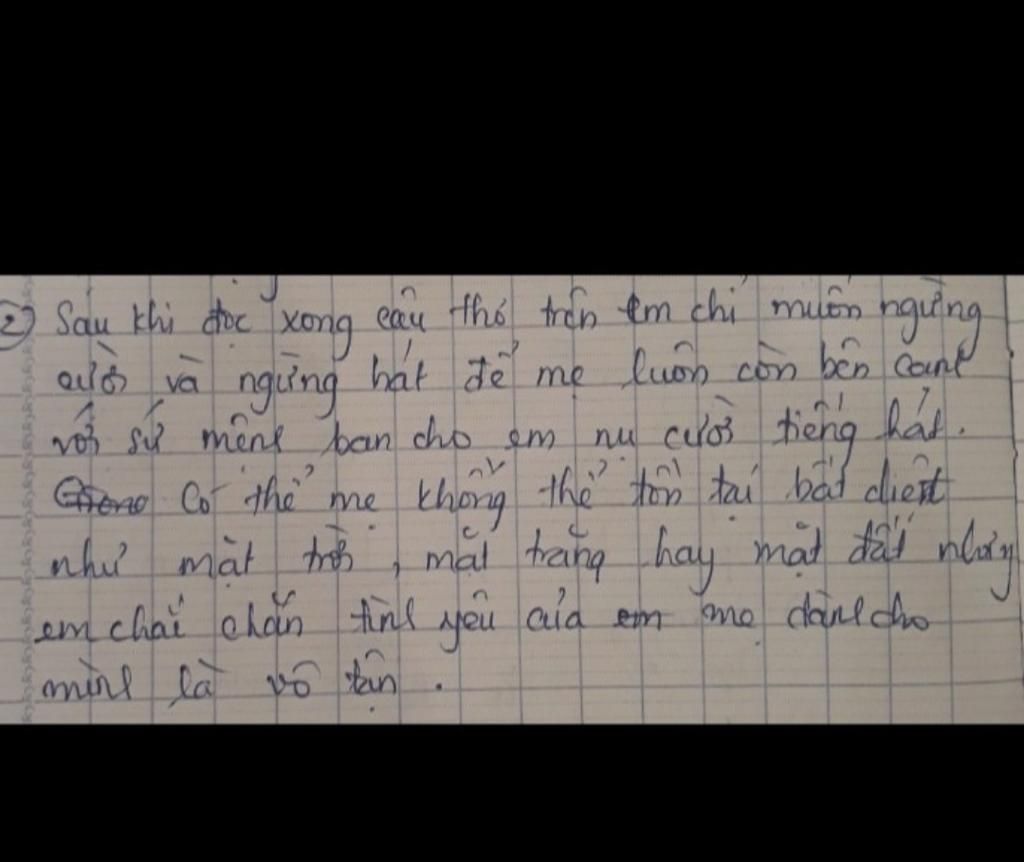 ② Sau khi đọc xong câu thơ trên em chỉ muốn ngừng
cười và ngừng hát để mẹ luôn còn bên cạnh
với sứ mệnh ban cho em nụ cười tiếng hát.
Có thể mẹ không thể tồn tại bất diệt
như mặt trời, mặt trăng hay mặt đất nhưng
em chắc chắn tình yêu của mẹ dành cho
mình là vô tận.